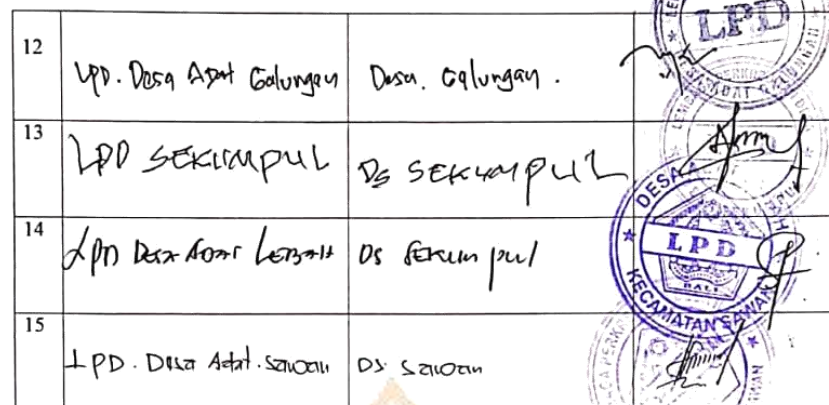 LPD
12
LPD. Desa Adat Galungan
Desa. Galungan.
13
LPD SEKUMPUL
Ds SEKUMPUL
14
LPD Desa Adat Lebah
Ds Sekumpul
DESA A
LPD
BALI
KECAMATAN SAWAN
15
LPD. Desa Adat. Sawan
Ds. Sawan